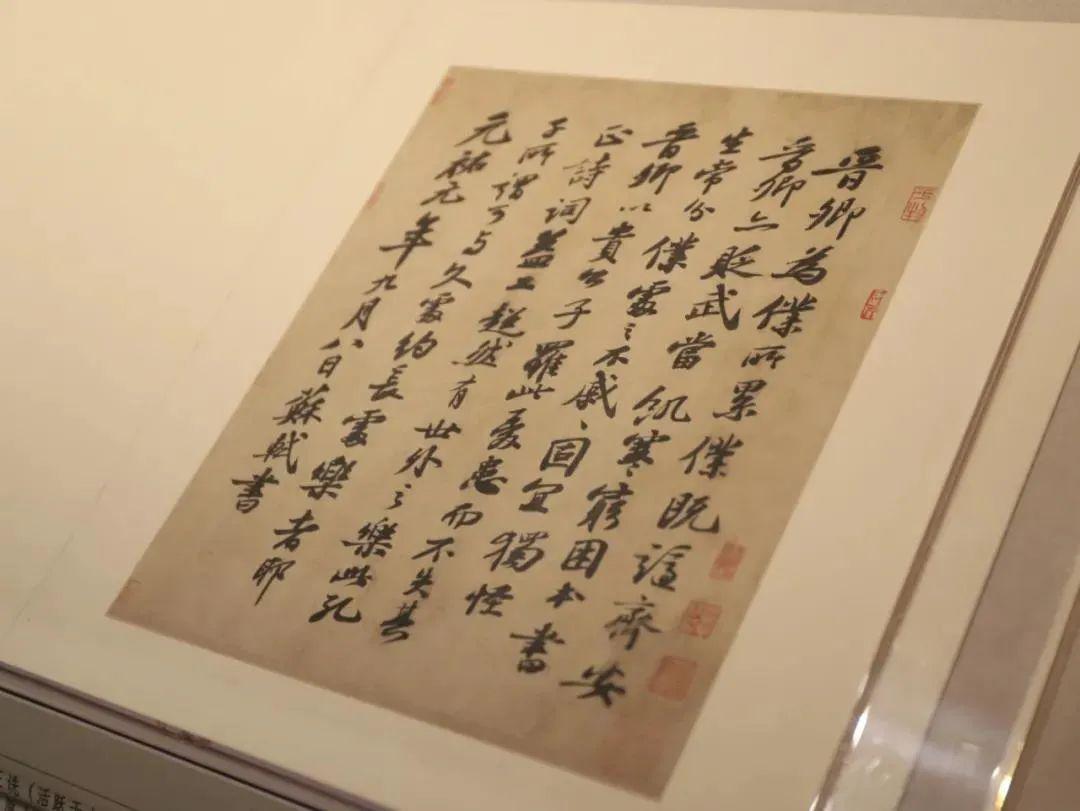 晉卿為僕所累僕既謫齊安
晉卿亦貶武當飢寒窮困本書
生常分僕處之不戚〻固宜獨怪
晉卿以貴公子罹此憂患而不失其
正詩詞益工超然有世外之樂此孔
子所謂可与久處約長處樂者耶
元祐元年九月八日蘇軾書
王诜（活跃于